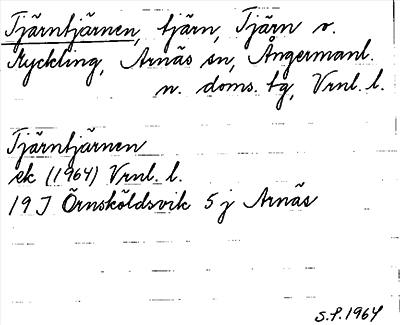 Tjärntjärnen, tjärn, Tjärn o.
Kyckling, Arnäs sn, Ångermanl.
n. doms. tg, Vrnl. l.
Tjärntjärnen
ek (1964) Vrnl. l.
19 J Örnsköldsvik 5 j Arnäs
S.P. 1964